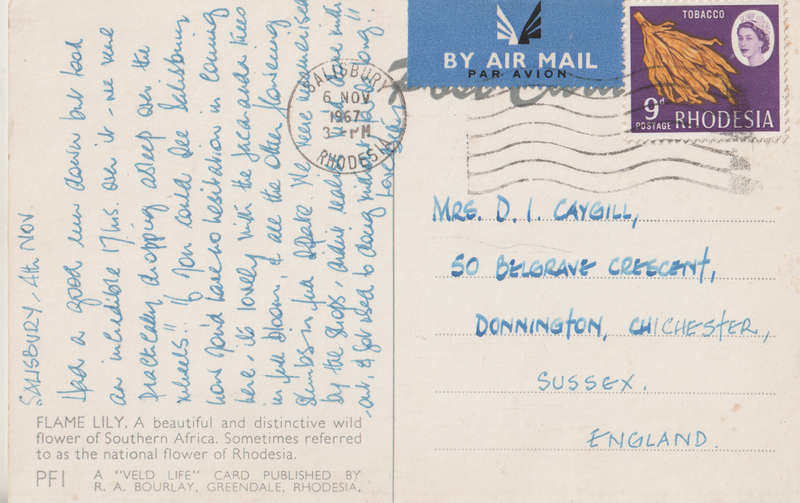 SALISBURY, 4th NOV.
Had a good run down but took
an incredible 17 hrs. over it – we were
practically dropping asleep over the
wheels!! If you could see Salisbury
now you'd have no hesitation in coming
here, it's lovely with the Jacaranda trees
in full bloom, & all the other flowering
shrubs in full spate. We were mesmerised
by the shops, didn't
out & get used to doing without for so long!!
Love
FLAME LILY. A beautiful and distinctive wild
flower of Southern Africa. Sometimes referred
to as the national flower of Rhodesia.
PF1 A "VELD LIFE" CARD PUBLISHED BY
R. A. BOURLAY, GREENDALE, RHODESIA.
BY AIR MAIL
PAR AVION
SALISBURY
6 NOV
1967
3 PM
RHODESIA
TOBACCO
9d
POSTAGE RHODESIA
MRS. D. I. CAYGILL,
50 BELGRAVE CRESCENT,
DONNINGTON, CHICHESTER,
SUSSEX.
ENGLAND.